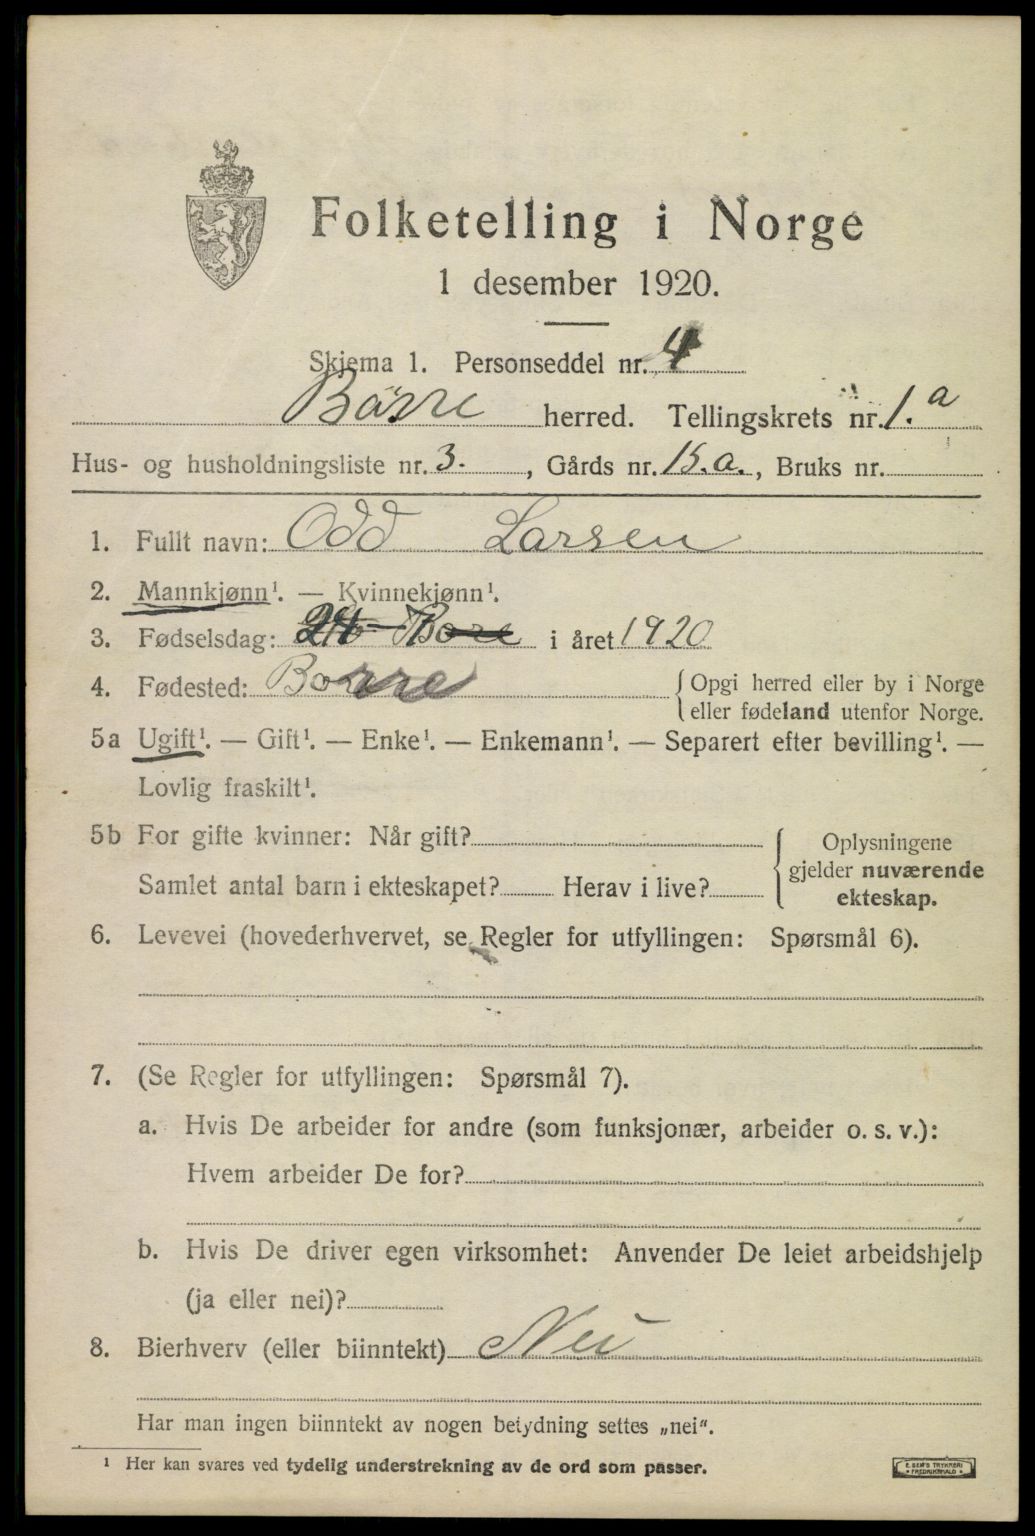 Folketelling i Norge
1 desember 1920.
Skjema 1. Personseddel nr. 4
Børre herred. Tellingskrets nr. 1.a
Hus- og husholdningsliste nr. 3. , Gårds nr. 15.a. , Bruks nr.
1. Fullt navn: Odd Larsen
2. Mannkjønn¹. — Kvinnekjønn¹.
3. Fødselsdag: 24 - i året 1920
4. Fødested: Borre {Opgi herred eller by i Norge
eller fødeland utenfor Norge.
5a Ugift¹. — Gift¹. — Enke¹. — Enkemann¹. — Separert efter bevilling¹. —
Lovlig fraskilt¹.
5b For gifte kvinner: Når gift? Oplysningene
gjelder nuværende
Samlet antal barn i ekteskapet? Herav i live? ekteskap.
6. Levevei (hovederhvervet, se Regler for utfyllingen: Spørsmål 6).
7. (Se Regler for utfyllingen: Spørsmål 7).
a. Hvis De arbeider for andre (som funksjonær, arbeider o. s. v.):
Hvem arbeider De for?
b. Hvis De driver egen virksomhet: Anvender De leiet arbeidshjelp
(ja eller nei)?
8. Bierhverv (eller biinntekt) Nei
Har man ingen biinntekt av nogen betydning settes „nei".
¹ Her kan svares ved tydelig understrekning av de ord som passer.
E. SEM'S TRYKKERI
FREDRIKSHALD